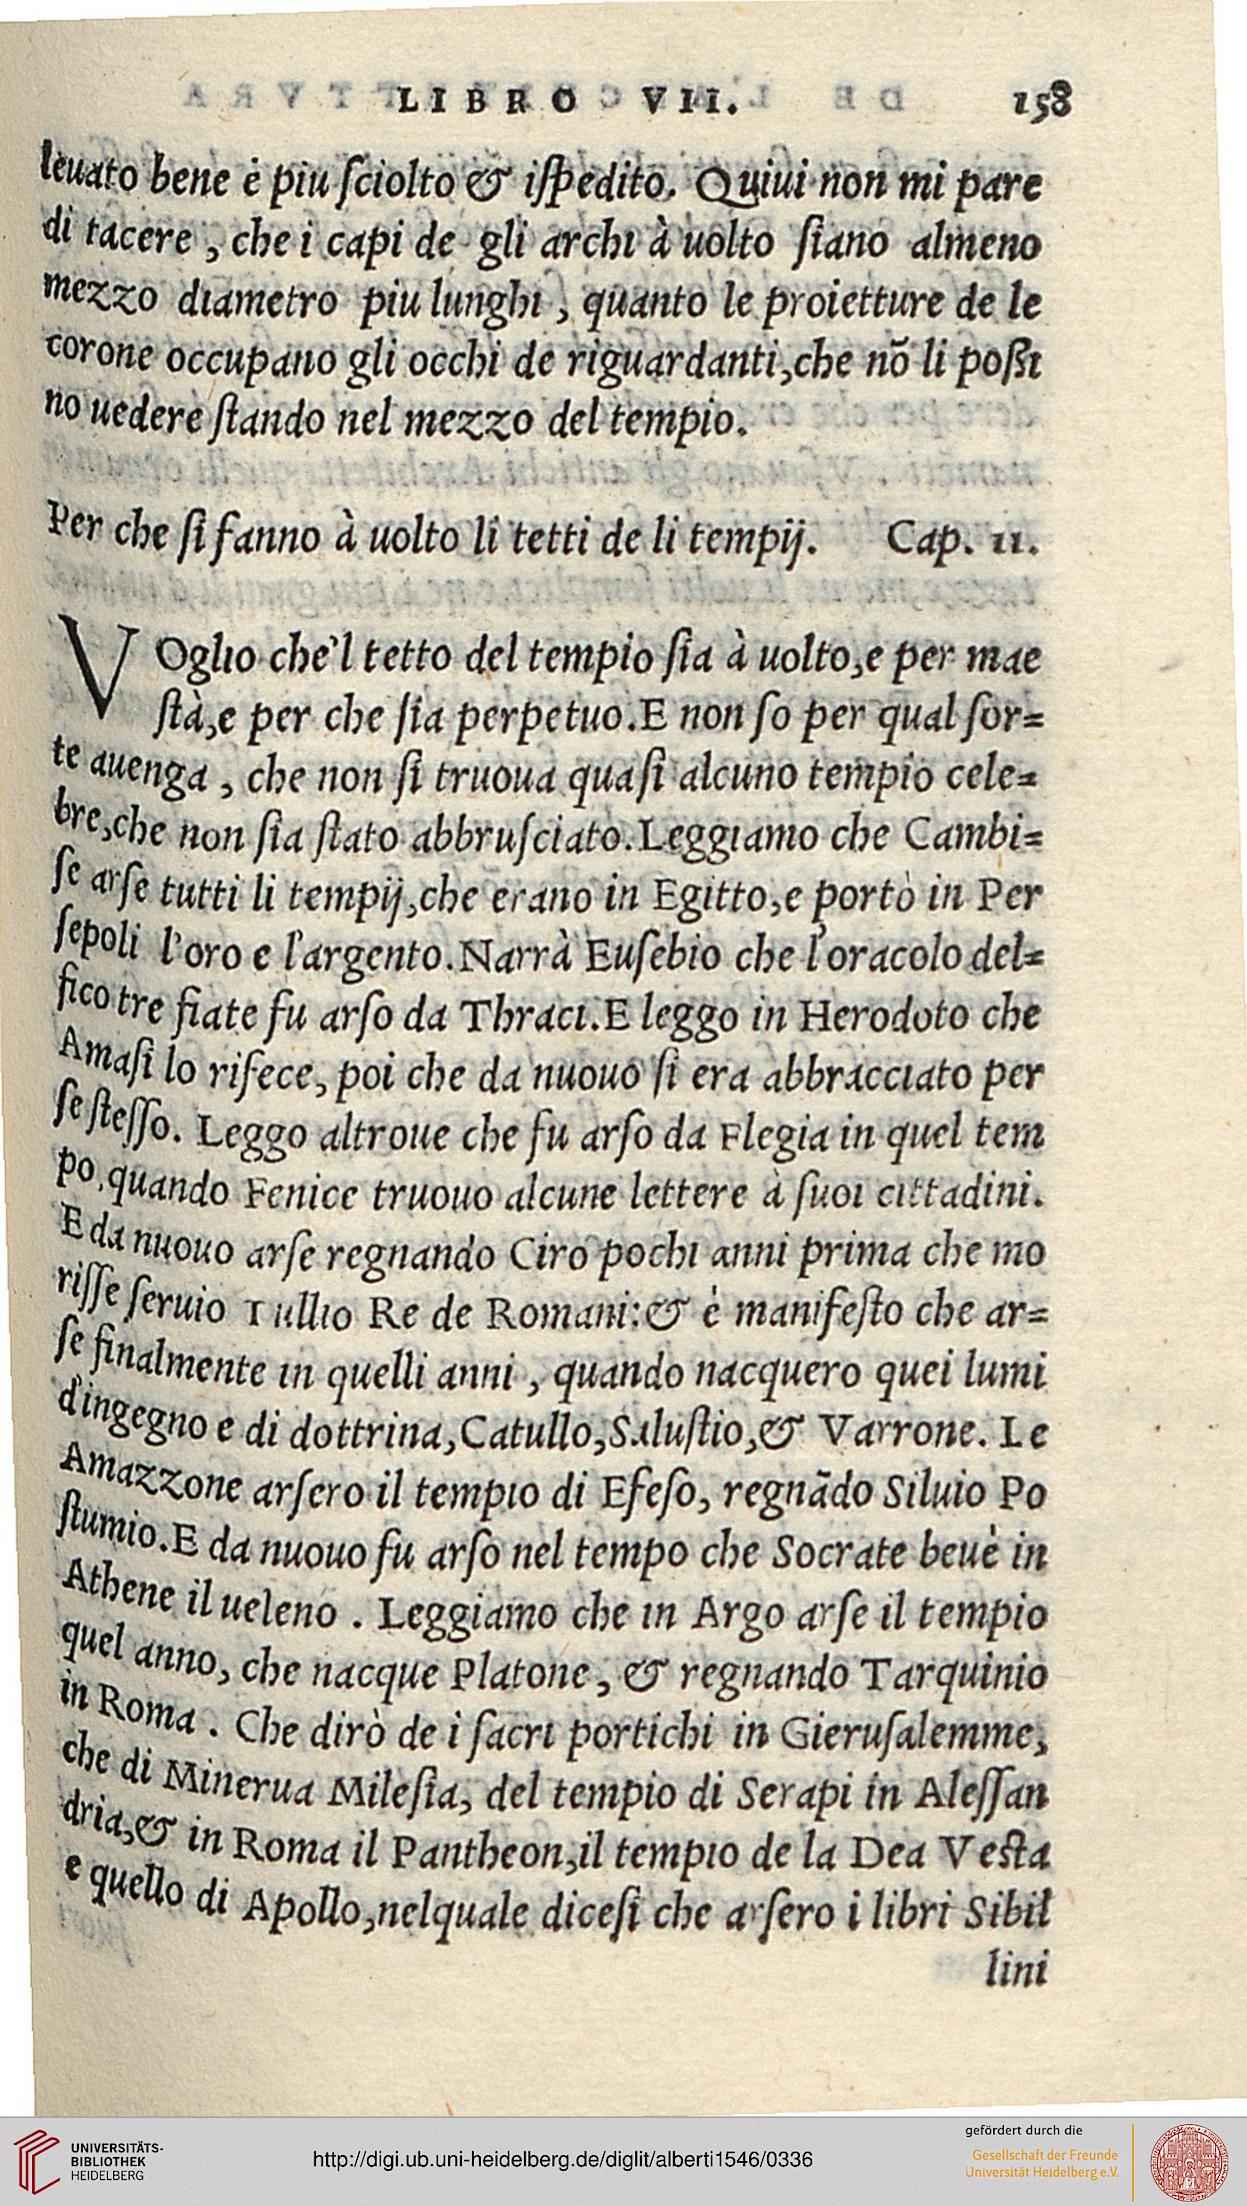 LIBRO VII. 158
leuato bene è piu ſciolto & iſpedito. Quiui non mi pare
di tacere, che i capi de gli archi à uolto ſiano almeno
mezzo diametro piu lunghi, quanto le proietture de le
corone occupano gli occhi de riguardanti,che nō li poßi
no uedere ſtando nel mezzo del tempio.
Per che ſi fanno à uolto li tetti de li tempij. Cap. 11.
VOglio che'l tetto del tempio ſia à uolto,e per mae
ſtà,e per che ſia perpetuo.E non ſo per qual ſor=
te auenga, che non ſi truoua quaſi alcuno tempio cele=
bre,che non ſia ſtato abbruſciato.Leggiamo che Cambi=
ſe arſe tutti li tempij,che erano in Egitto,e portò in Per
ſepoli l'oro e l'argento.Narrà Euſebio che l'oracolo del=
fico tre fiate fu arſo da Thraci.E leggo in Herodoto che
Amaſi lo rifece, poi che da nuouo ſi era abbracciato per
ſe ſteſſo. Leggo altroue che fu arſo da Flegia in quel tem
po, quando Fenice truouo alcune lettere à ſuoi cittadini.
E da nuouo arſe regnando Ciro pochi anni prima che mo
riſſe ſeruio Tullio Re de Romani:& è manifeſto che ar=
ſe finalmente in quelli anni, quando nacquero quei lumi
d'ingegno e di dottrina,Catullo,Saluſtio,& Varrone. Le
Amazzone arſero il tempio di Efeſo, regnādo Siluio Po
ſtumio.E da nuouo fu arſo nel tempo che Socrate beuè in
Athene il ueleno. Leggiamo che in Argo arſe il tempio
quel anno, che nacque Platone, & regnando Tarquinio
in Roma. Che dirò de i ſacri portichi in Gieruſalemme,
che di Minerua Mileſia, del tempio di Serapi in Aleſſan
dria,& in Roma il Pantheon,il tempio de la Dea Veſta
e quello di Apollo,nelquale diceſi che arſero i libri Sibil
lini
UNIVERSITÄTS-
BIBLIOTHEK
HEIDELBERG
http://digi.ub.uni-heidelberg.de/diglit/alberti1546/0336
gefördert durch die
Gesellschaft der Freunde
Universität Heidelberg e.V.